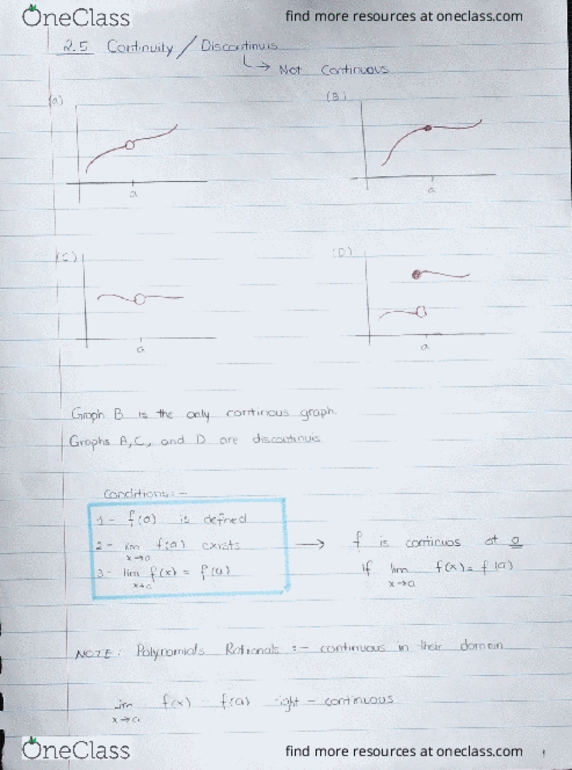 OneClass
find more resources at oneclass.com
2.5 Continuity / Discontinuis
↳ Not Continuous
(a)
(B)
a
a
(C)
(D)
a
a
Graph B is the only continous graph.
Graphs A, C, and D are discontinuis
Conditions:-
1- f(a) is defined
2- lim f(a) exists
x→a
3- lim f(x) = f(a)
x→a
→ f is continuos at a
if lim f(x) = f(a)
x→a
NOTE: Polynomials Rationals :- continuous in their domain
lim f(x) f(a) right - continuous
x→a
OneClass
find more resources at oneclass.com